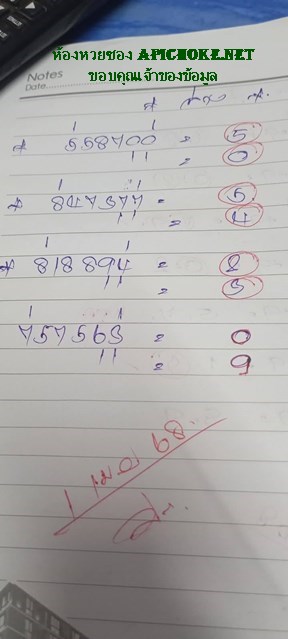 ห้องหวยซอง APICHOKE.NET
ขอบคุณเจ้าของข้อมูล
Notes
Date
558700 = 5
= 0
847577 = 5
= 4
818894 = 8
= 5
757563 = 0
= 9
1 เมย 68